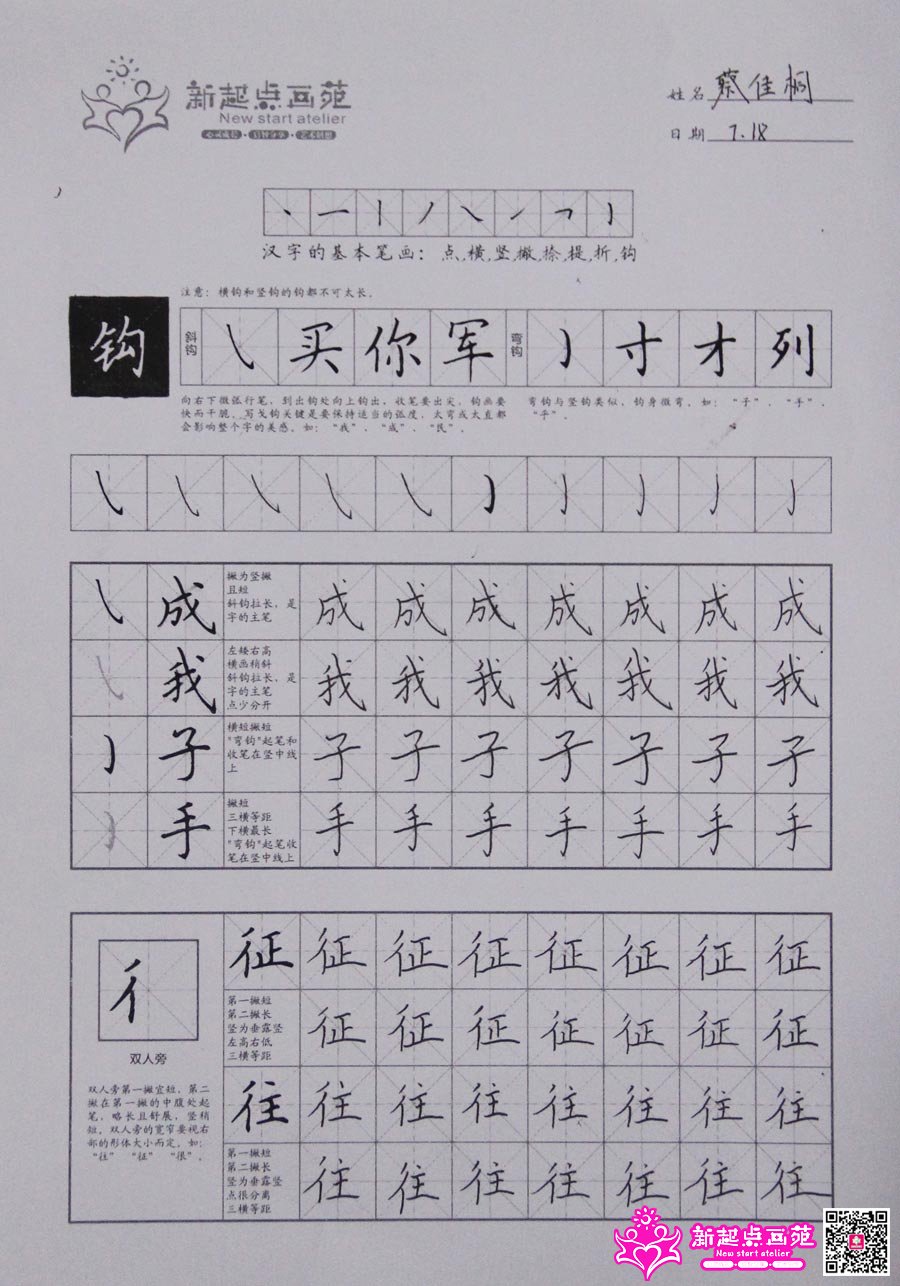 新起点画苑
New start atelier
姓名 蔡佳桐
日期 7.18
汉字的基本笔画：点,横,竖,撇,捺,提,折,钩
注意：横钩和竖钩的钩都不可太长。
钩
斜钩 买 你 军 弯钩 寸 才 列
向右下微弧行笔，到出钩处向上钩出，收笔要出尖，钩画要
快而干脆。写戈钩关键是要保持适当的弧度，太弯或太直都
会影响整个字的美感。如："我"、"成"、"民"。
弯钩与竖钩类似，钩身微弯。如："子"、"手"、
"乎"。
成
撇为竖撇
且短
斜钩拉长，是
字的主笔
成 成 成 成 成 成 成
我
左矮右高
横画稍斜
斜钩拉长，是
字的主笔
点少分开
我 我 我 我 我 我 我
子
横短撇短
"弯钩"起笔和
收笔在竖中线
上
子 子 子 子 子 子 子
手
撇短
三横等距
下横最长
"弯钩"起笔收
笔在竖中线上
手 手 手 手 手 手 手
彳
双人旁
双人旁第一撇宜短，第二
撇在第一撇的中腹处起
笔，略长且舒展，竖稍
短。双人旁的宽窄要视右
部的形体大小而定。如：
"往" "征" "很"。
征 征 征 征 征 征 征 征
第一撇短
第二撇长
竖为垂露竖
左高右低
三横等距
征 征 征 征 征 征 征
往 往 往 往 往 往 往 往
第一撇短
第二撇长
竖为垂露竖
点很分离
三横等距
往 往 往 往 往 往 往
新起点画苑
New start atelier